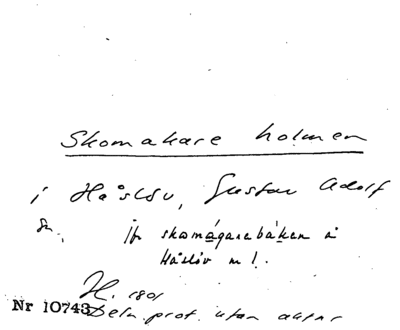 Skomakare holmen
i Håslöv, Gustav Adolf
sn. jfr skomágarebáken å
Håslöv n 1.
H. 1801
Nr 10743 Deln. prot. utan aktnr